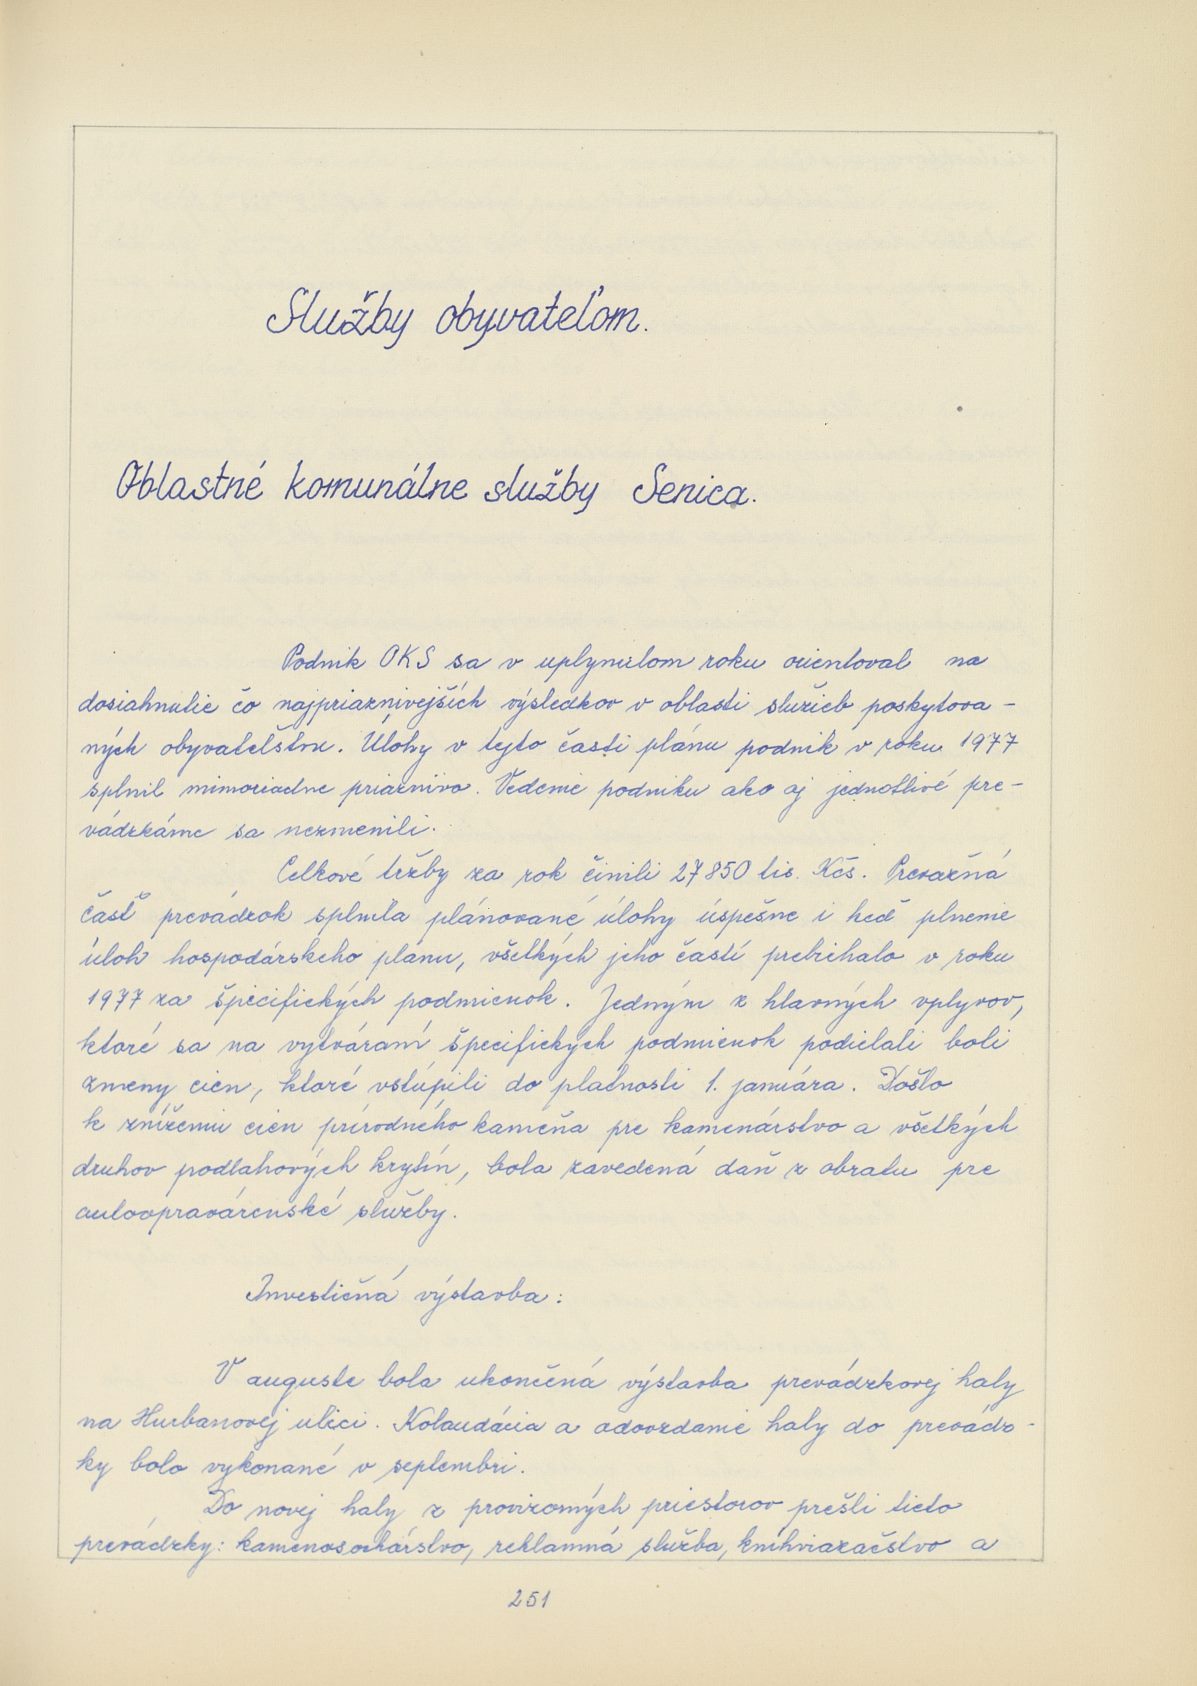 Služby obyvateľom.
Oblastné komunálne služby Senica.
Podnik OKS sa v uplynulom roku orientoval na
dosiahnutie čo najpriaznivejších výsledkov v oblasti služieb poskytova-
ných obyvateľstvu. Úlohy v tejto časti plánu podnik v roku 1977
splnil mimoriadne priaznivo. Vedenie podniku ako aj jednotlivé pre-
vádzkárne sa nezmenili.
Celkové tržby za rok činili 27 850 tis. Kčs. Prevažná
časť prevádzok splnila plánované úlohy úspešne i keď plnenie
úloh hospodárskeho plánu, všetkých jeho častí prebiehalo v roku
1977 za špecifických podmienok. Jedným z hlavných vplyvov,
ktoré sa na vytváraní špecifických podmienok podielali boli
zmeny cien, ktoré vstúpili do platnosti 1. januára. Došlo
k zníženiu cien prírodného kameňa pre kamenárstvo a všetkých
druhov podlahových krytín, bola zavedená daň z obratu pre
autoopravárenské služby.
Investičná výstavba:
V auguste bola ukončená výstavba prevádzkovej haly
na Hurbanovej ulici. Kolaudácia a odovzdanie haly do prevádz-
ky bolo vykonané v septembri.
Do novej haly z provizorných priestorov prešli tieto
prevádzky: kamenosochárstvo, reklamná služba, kníhviazačstvo a
251